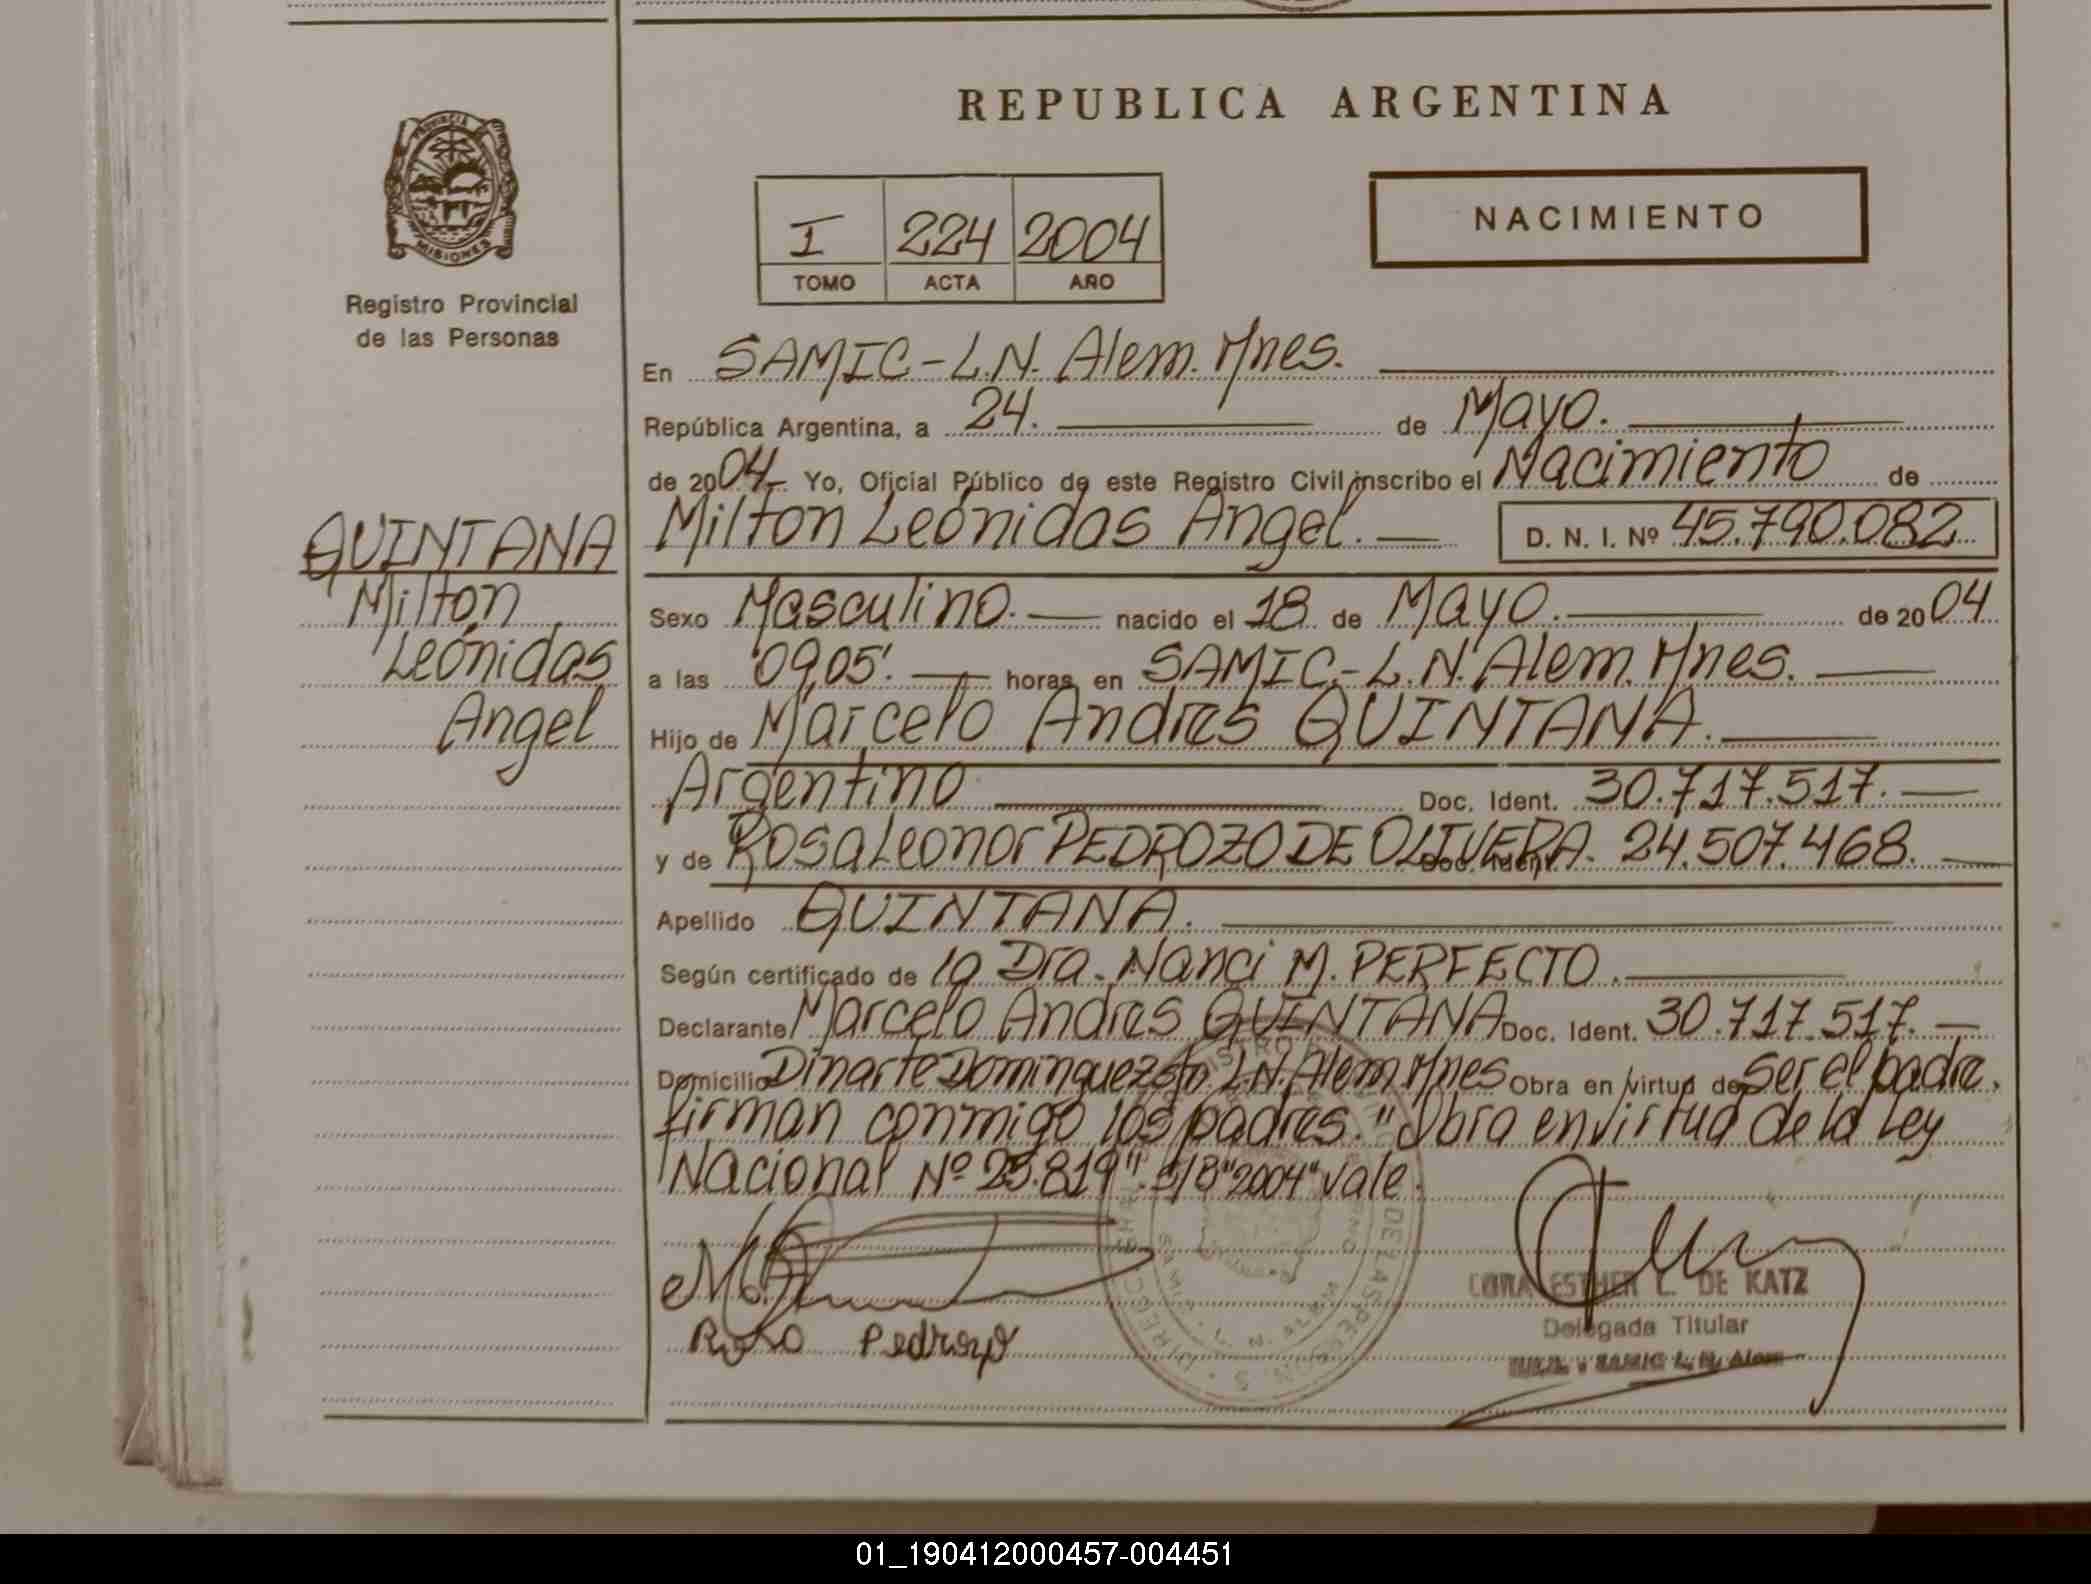 REPUBLICA ARGENTINA
PROVINCIA DE
MISIONES
Registro Provincial
de las Personas
NACIMIENTO
I 224 2004
TOMO ACTA AÑO
En SAMIC-L.N. Alem. Mnes.
República Argentina, a 24. de Mayo.
de 2004 Yo, Oficial Público de este Registro Civil inscribo el Nacimiento de
Milton Leónidas Angel. D. N. I. Nº 45.790.082
QUINTANA
Milton
Leónidas
Angel
Sexo Masculino. nacido el 18 de Mayo. de 2004
a las 09,05'. horas en SAMIC.-L.N. Alem. Mnes.
Hijo de Marcelo Andres QUINTANA.
Argentino Doc. Ident. 30.717.517.
y de Rosa Leonor PEDROZO DE OLIVERA. Doc. Ident. 24.507.468.
Apellido QUINTANA.
Según certificado de la Dra. Nanci M. PERFECTO.
Declarante Marcelo Andres QUINTANA Doc. Ident. 30.717.517.
Domicilio Dinarte Dominguez s/n. L.N. Alem Mnes Obra en virtud de Ser el padre,
firman conmigo los padres. "Obra en virtud de la Ley
Nacional Nº 25.819". S/B "2004" vale.
Rosa Pedrozo
ESTHER L. DE KATZ
Delegada Titular
SAMIC L. N. Alem
01_190412000457-004451